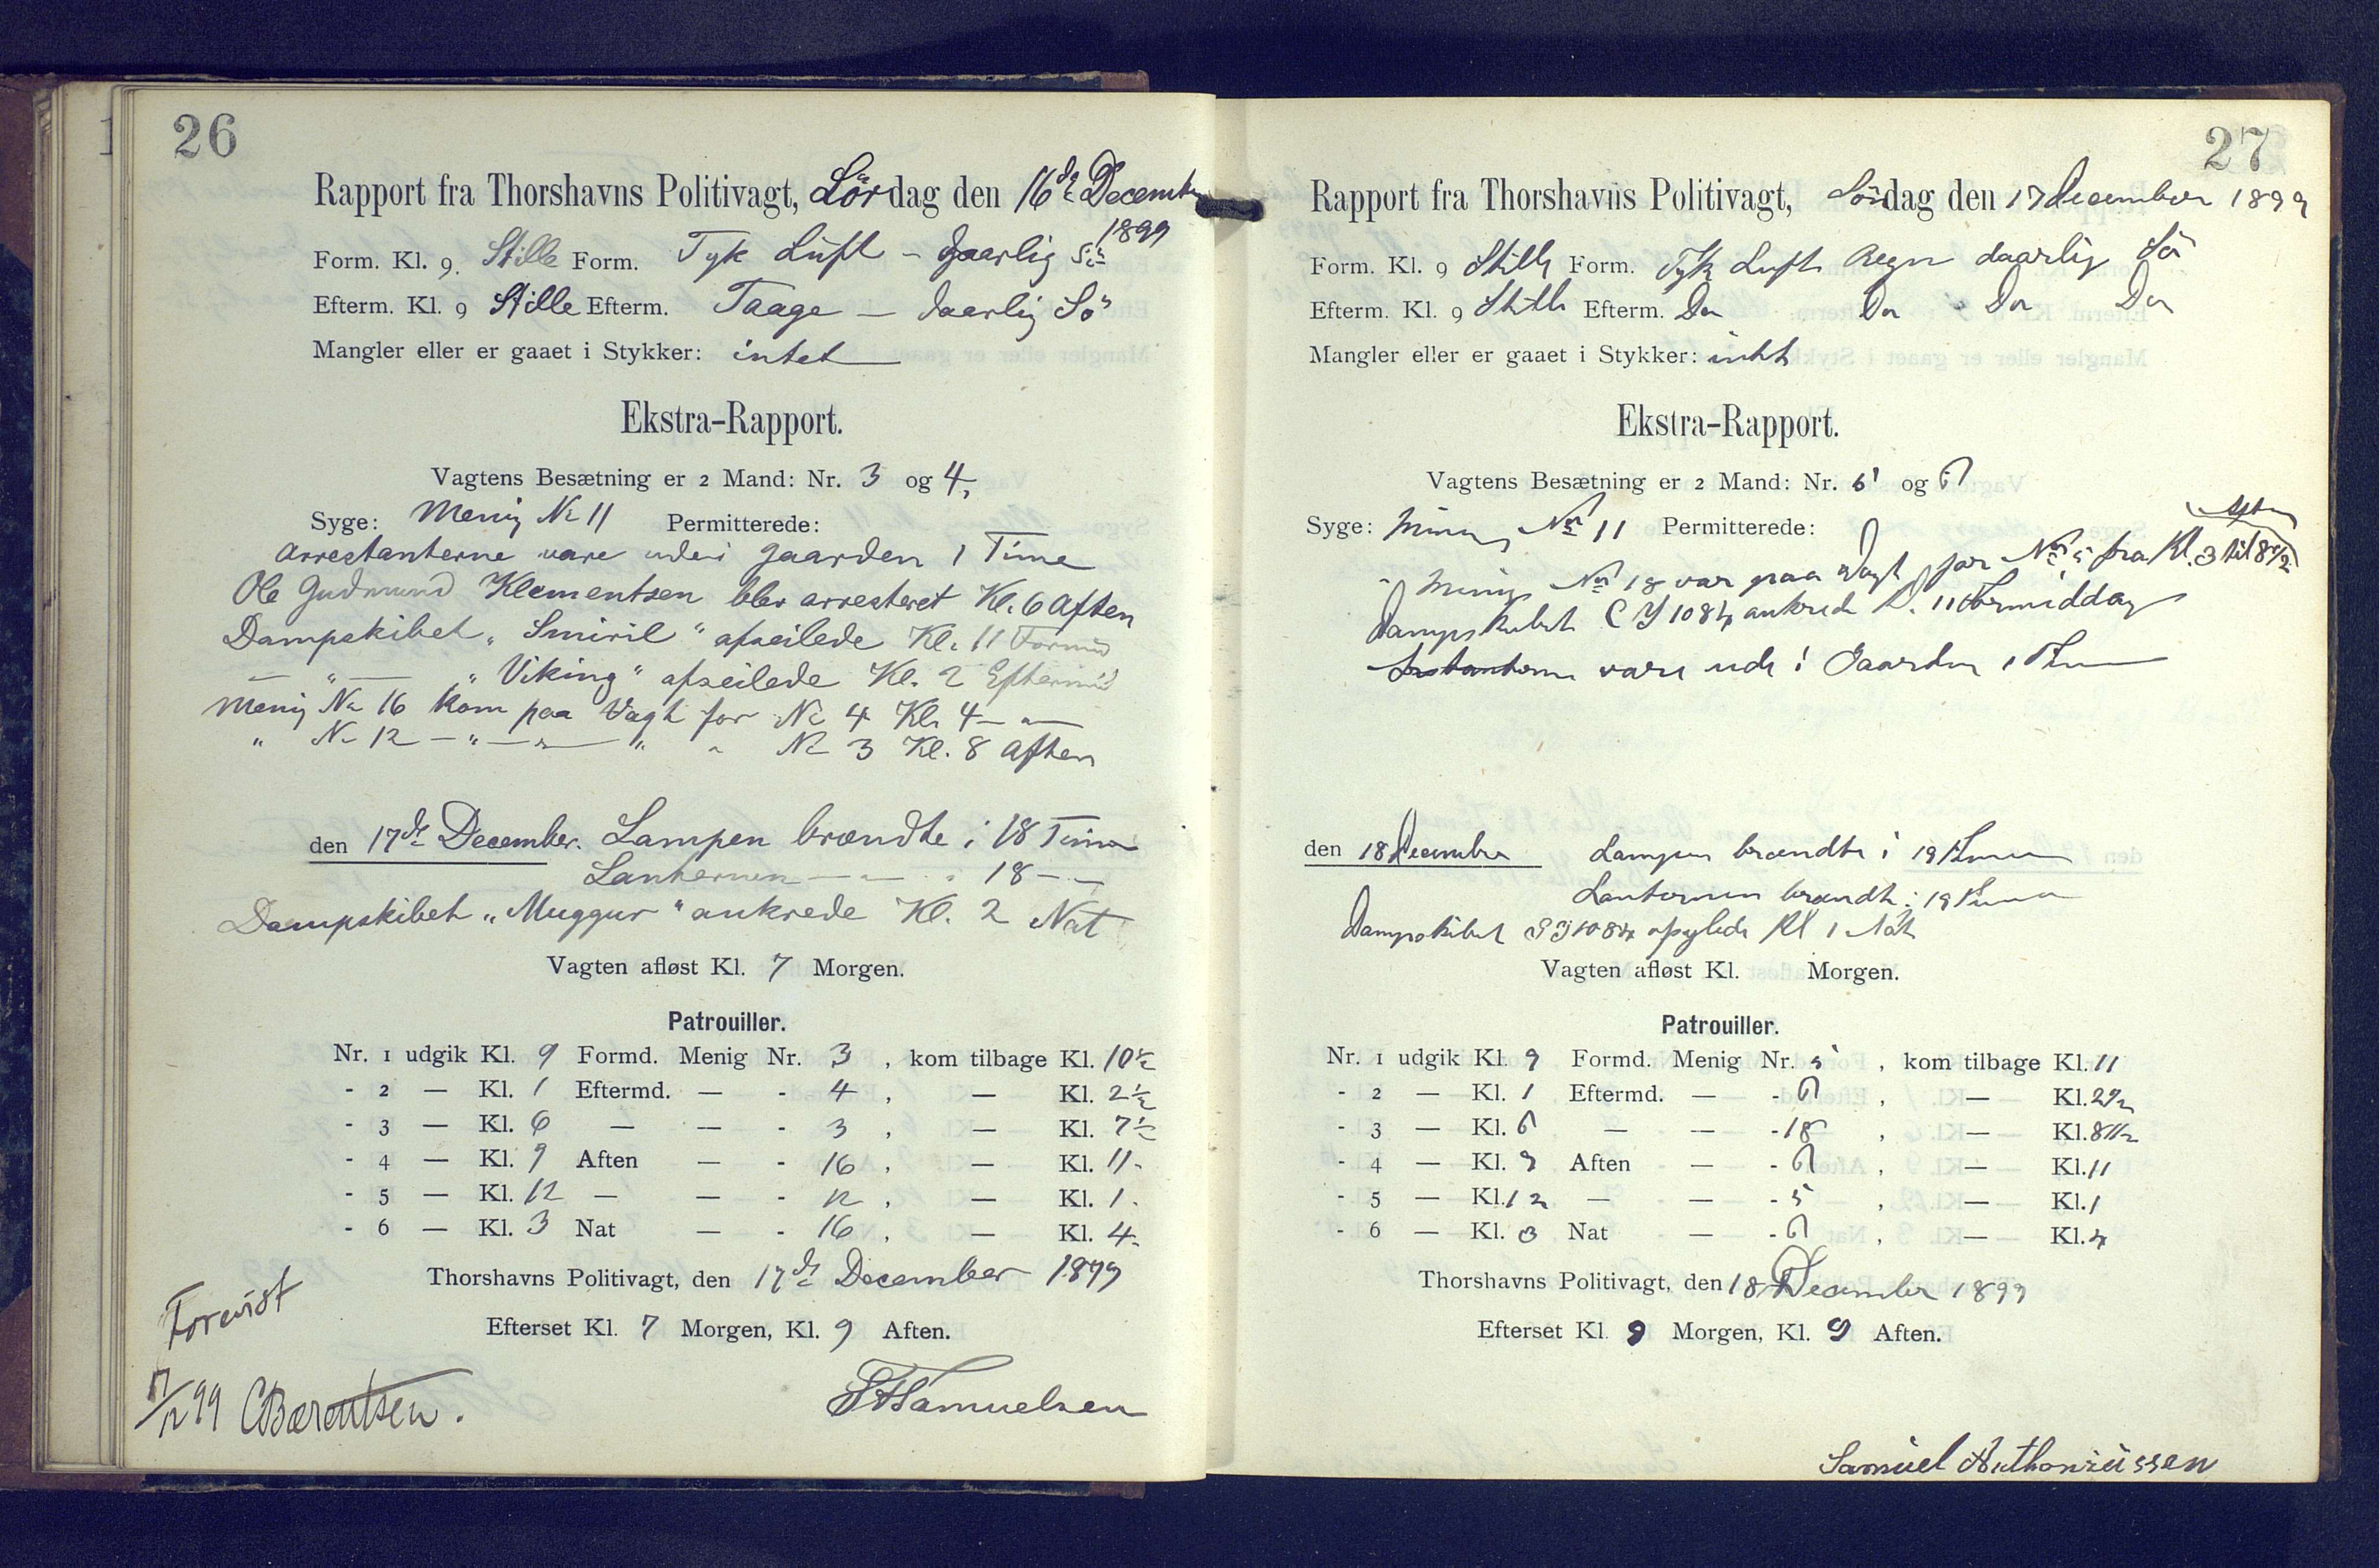 26
Rapport fra Thorshavns Politivagt, Lördag den 16de December
1899
Form. Kl. 9. Stille Form. Tyk Luft - daarlig Sö
Efterm. Kl. 9 Stille Efterm. Taage — daarlig Sö
Mangler eller er gaaet i Stykker: intet
Ekstra-Rapport.
Vagtens Besætning er 2 Mand: Nr. 3 og 4,
Syge: Menig No 11 Permitterede:
Arrestanterne vare ude i Gaarden 1 Time
Ole Gudmund Klementsen blev arresteret Kl. 6 Aften
Dampskibet „Smiril" afseilede Kl. 11 Formid
— " — „Viking" afseilede Kl. 2 Eftermid
Menig No 16 kom paa Vagt for No 4 Kl. 4 — " —
" No 12 — " — " — " " No 3 Kl. 8 Aften
den 17de December. Lampen brændte i 18 Timer
Lanternen — " — " 18 — " —
Dampskibet „Muggur" ankrede Kl. 2 Nat
Vagten afløst Kl. 7 Morgen.
Patrouiller.
Nr. 1 udgik Kl. 9 Formd. Menig Nr. 3, kom tilbage Kl. 10½
- 2 — Kl. 1 Eftermd. — - 4, — Kl. 2½
- 3 — Kl. 6 — — - 3, — Kl. 7½
- 4 — Kl. 9 Aften — - 16, — Kl. 11-
- 5 — Kl. 12 — — - 12, — Kl. 1-
- 6 — Kl. 3 Nat — - 16, — Kl. 4-
Thorshavns Politivagt, den 17de December 1899
Efterset Kl. 7 Morgen, Kl. 9 Aften.
Forevist
17/12 99 CBærentsen.
Samuelsen
27
Rapport fra Thorshavns Politivagt, Söndag den 17 December 1899
Form. Kl. 9 Stille Form. Tyk Luft Regn daarlig Sö
Efterm. Kl. 9 Stille Efterm. Do Do Do Do
Mangler eller er gaaet i Stykker: intet
Ekstra-Rapport.
Vagtens Besætning er 2 Mand: Nr. 5 og 6
Syge: Menig No 11 Permitterede:
Aften
Menig No 18 var paa Vagt for No 5 fra Kl. 3 til 8½
Dampskibet 1084 ankrede Kl. 11 Formiddag
Arestanterne vare ude i Gaarden 1 Time
den 18 December Lampen brændte i 19 Timer
Lanternen brændte i 19 Timer
Dampskibet 1084 afseilede Kl 1 Nat
Vagten afløst Kl. Morgen.
Patrouiller.
Nr. 1 udgik Kl. 9 Formd. Menig Nr. 5, kom tilbage Kl. 11
- 2 — Kl. 1 Eftermd. — - 6, — Kl. 2½
- 3 — Kl. 6 — — - 18, — Kl. 8½
- 4 — Kl. 9 Aften — - 6, — Kl. 11
- 5 — Kl. 12 — — - 5, — Kl. 1
- 6 — Kl. 3 Nat — - 6, — Kl. 4
Thorshavns Politivagt, den 18 December 1899
Efterset Kl. 9 Morgen, Kl. 9 Aften.
Samuel Anthoniussen